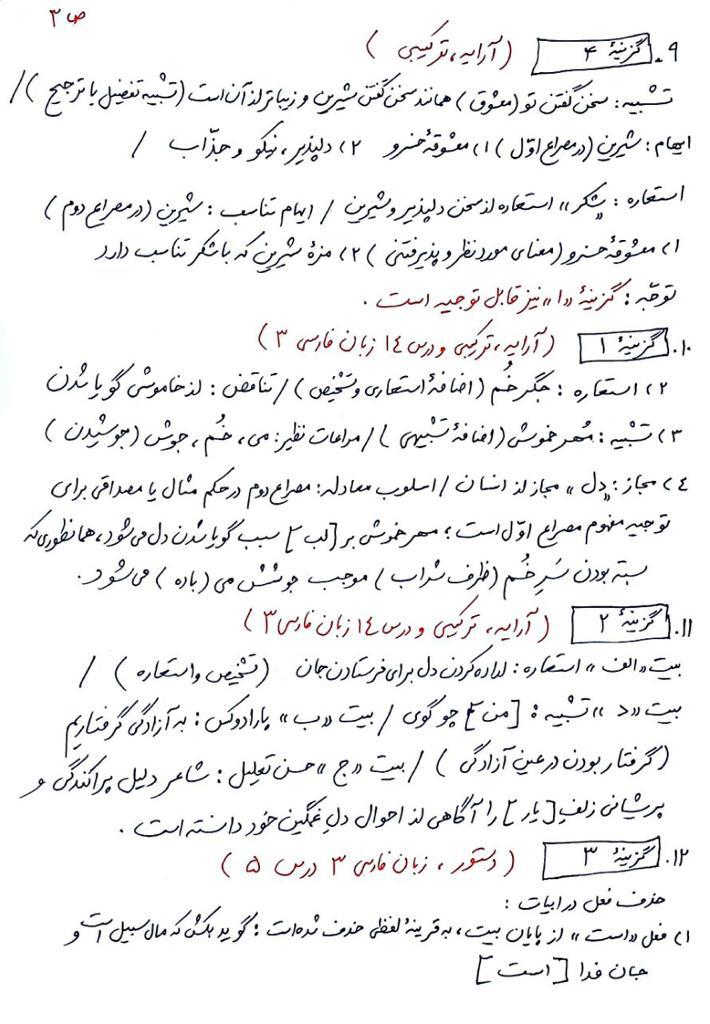 ص ۳
۹. گزینهٔ ۴ (آرایه، ترکیبی)
تشبیه: سخن گفتن تو (معشوق) همانند سخن گفتن شیرین و زیباتر از آن است (تشبیه تفضیل یا ترجیح) /
ایهام: شیرین (در مصراع اوّل) ۱) معشوقهٔ خسرو ۲) دلپذیر، نیکو و جذّاب /
استعاره: «شکر» استعاره از سخن دلپذیر و شیرین / ایهام تناسب: شیرین (در مصراع دوم)
۱) معشوقهٔ خسرو (معنای مورد نظر و پذیرفتنی) ۲) مزهٔ شیرین که با شکر تناسب دارد
توجّه: گزینهٔ «۱» نیز قابل توجیه است.
۱۰. گزینهٔ ۱ (آرایه، ترکیبی و درس ۱۴ زبان فارسی ۳)
۲) استعاره: جگر خُم (اضافهٔ استعاری و تشخیص) / تناقض: از خاموشی گویا شدن
۳) تشبیه: مُهر خموشی (اضافهٔ تشبیهی) / مراعات نظیر: می، خُم، جوش (جوشیدن)
۴) مجاز: «دل» مجاز از انسان / اسلوب معادله: مصراع دوم در حکم مثال یا مصداقی برای
توجیه مفهوم مصراع اوّل است؛ مهر خموشی بر [لب] سبب گویا شدن دل می‌شود، همانطوری که
بسته بودن سَرِ خُم (ظرف شراب) موجب جوشش می (باده) می‌شود.
۱۱. گزینهٔ ۲ (آرایه، ترکیبی و درس ۱۴ زبان فارسی ۳)
بیت «الف» استعاره: اراده کردن دل برای فرستادن جان (تشخیص و استعاره) /
بیت «د» تشبیه: [من] چو گوی / بیت «ب» پارادوکس: به آزادگی گرفتاریم
(گرفتار بودن در عین آزادگی) / بیت «ج» حسن تعلیل: شاعر دلیل پراکندگی و
پریشانی زلفِ [یار] را آگاهی از احوال دلِ غمگین خود دانسته است.
۱۲. گزینهٔ ۳ (دستور، زبان فارسی ۳ درس ۵)
حذف فعل در ابیات:
۱) فعل «است» از پایان بیت، به قرینهٔ لفظی حذف شده است: گوید بکش که مال سبیل است و
جان فدا [است]